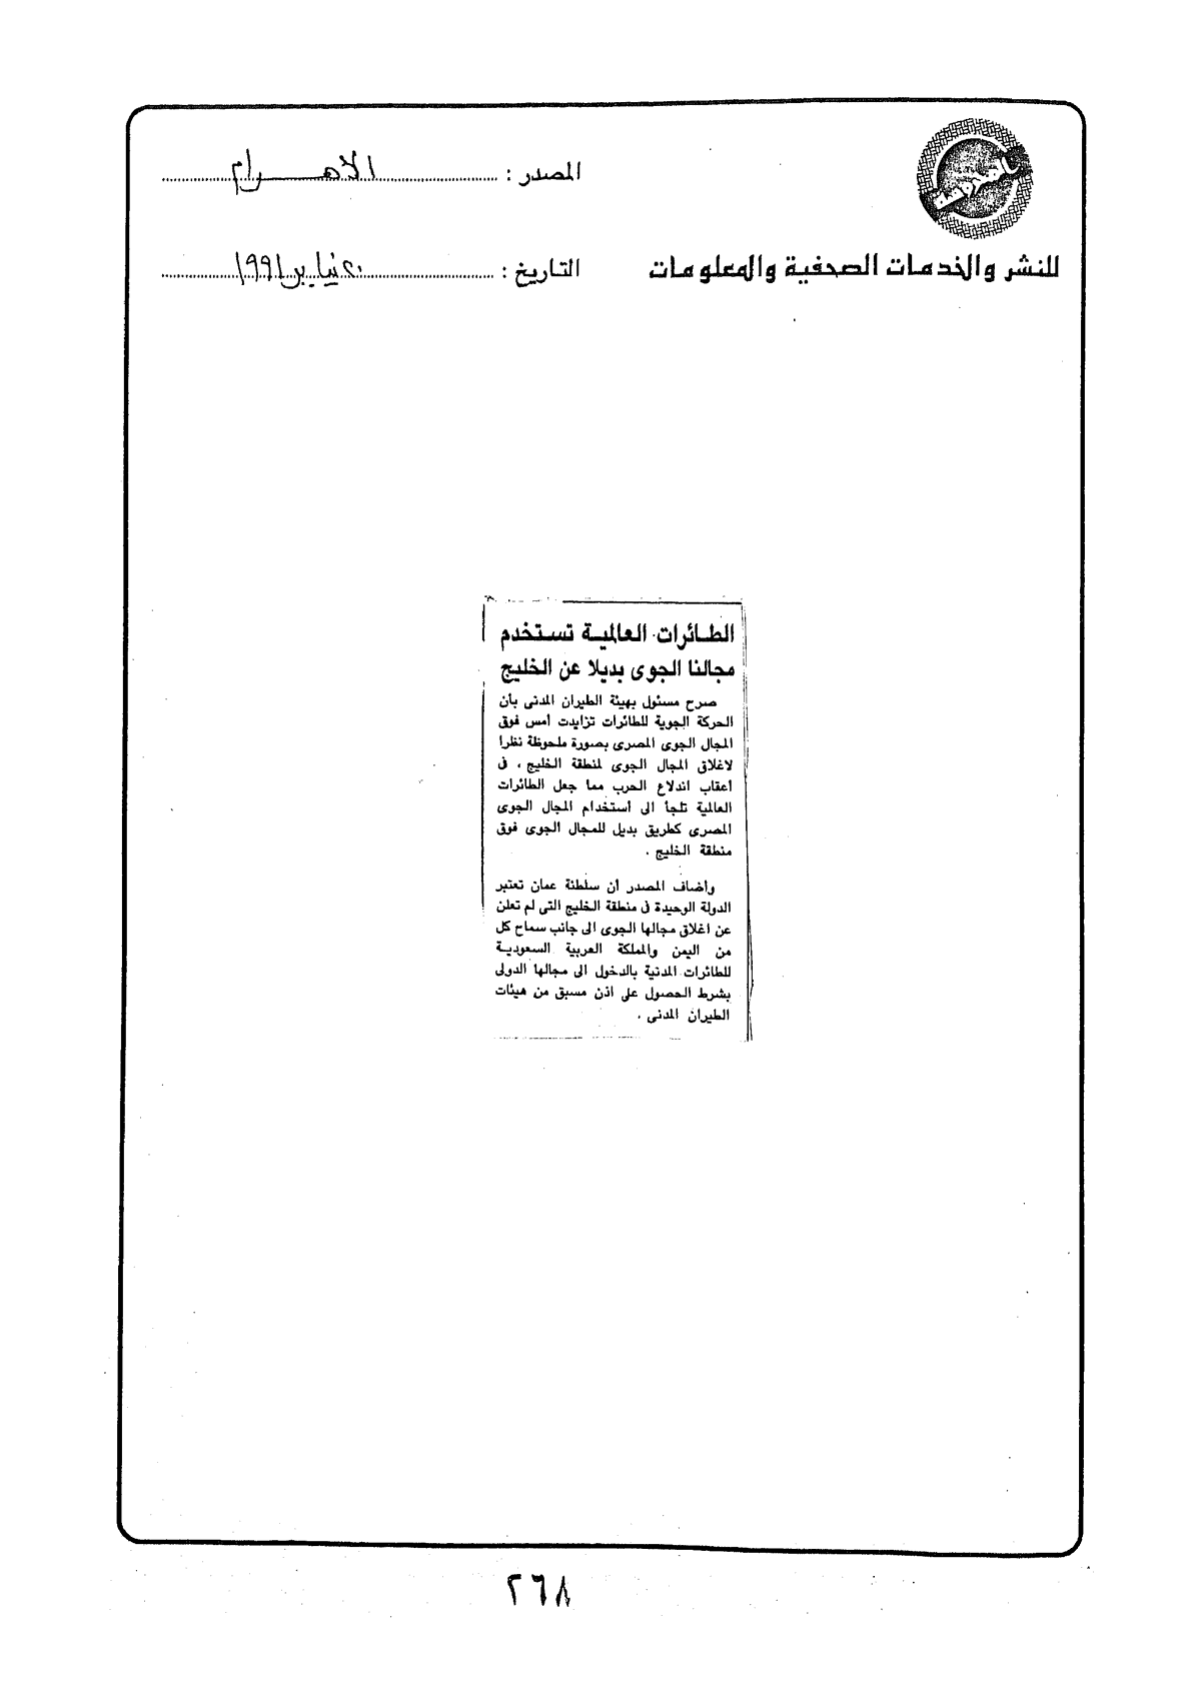 المصدر : الاهرام
للنشر والخدمات الصحفية والمعلومات
التاريخ : ٢٠ يناير ١٩٩١
الطائرات العالمية تستخدم
مجالنا الجوى بديلا عن الخليج
صرح مسئول بهيئة الطيران المدنى بأن
الحركة الجوية للطائرات تزايدت أمس فوق
المجال الجوى المصرى بصورة ملحوظة نظرا
لاغلاق المجال الجوى لمنطقة الخليج ، فى
أعقاب اندلاع الحرب مما جعل الطائرات
العالمية تلجأ الى أستخدام المجال الجوى
المصرى كطريق بديل للمجال الجوى فوق
منطقة الخليج .
وأضاف المصدر أن سلطنة عمان تعتبر
الدولة الوحيدة فى منطقة الخليج التى لم تعلن
عن اغلاق مجالها الجوى الى جانب سماح كل
من اليمن والمملكة العربية السعودية
للطائرات المدنية بالدخول الى مجالها الدولى
بشرط الحصول على اذن مسبق من هيئات
الطيران المدنى .
٢٦٨